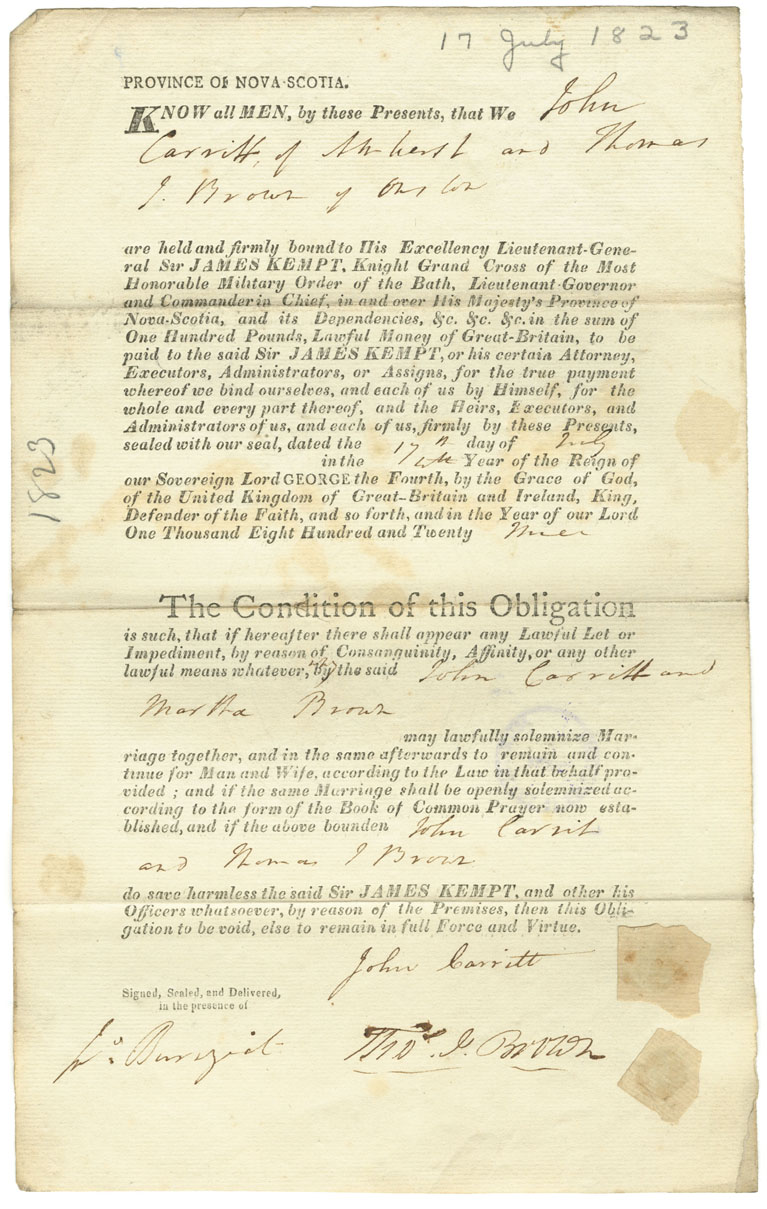 17 July 1823
PROVINCE OF NOVA-SCOTIA.
KNOW all MEN, by these Presents, that We John
Carritt, of Amherst and Thomas
J. Brown of Onslow
are held and firmly bound to His Excellency Lieutenant-Gene-
ral Sir JAMES KEMPT, Knight Grand Cross of the Most
Honorable Military Order of the Bath, Lieutenant-Governor
and Commander in Chief, in and over His Majesty's Province of
Nova-Scotia, and its Dependencies, &c. &c. &c. in the sum of
One Hundred Pounds, Lawful Money of Great-Britain, to be
paid to the said Sir JAMES KEMPT, or his certain Attorney,
Executors, Administrators, or Assigns, for the true payment
whereof we bind ourselves, and each of us by Himself, for the
whole and every part thereof, and the Heirs, Executors, and
Administrators of us, and each of us, firmly by these Presents,
sealed with our seal, dated the 17th day of July
in the Year of the Reign of
our Sovereign Lord GEORGE the Fourth, by the Grace of God,
of the United Kingdom of Great-Britain and Ireland, King,
Defender of the Faith, and so forth, and in the Year of our Lord
One Thousand Eight Hundred and Twenty three
1823
The Condition of this Obligation
is such, that if hereafter there shall appear any Lawful Let or
Impediment, by reason of Consanguinity, Affinity, or any other
lawful means whatever, why the said John Carritt and
Martha Brown
may lawfully solemnize Mar-
riage together, and in the same afterwards to remain and con-
tinue for Man and Wife, according to the Law in that behalf pro-
vided ; and if the same Marriage shall be openly solemnized ac-
cording to the form of the Book of Common Prayer now esta-
blished, and if the above bounden John Carrit
and Thomas J Brown
do save harmless the said Sir JAMES KEMPT, and other his
Officers whatsoever, by reason of the Premises, then this Obli-
gation to be void, else to remain in full Force and Virtue.
John Carritt
Signed, Sealed, and Delivered,
in the presence of
Thos. J. Brown